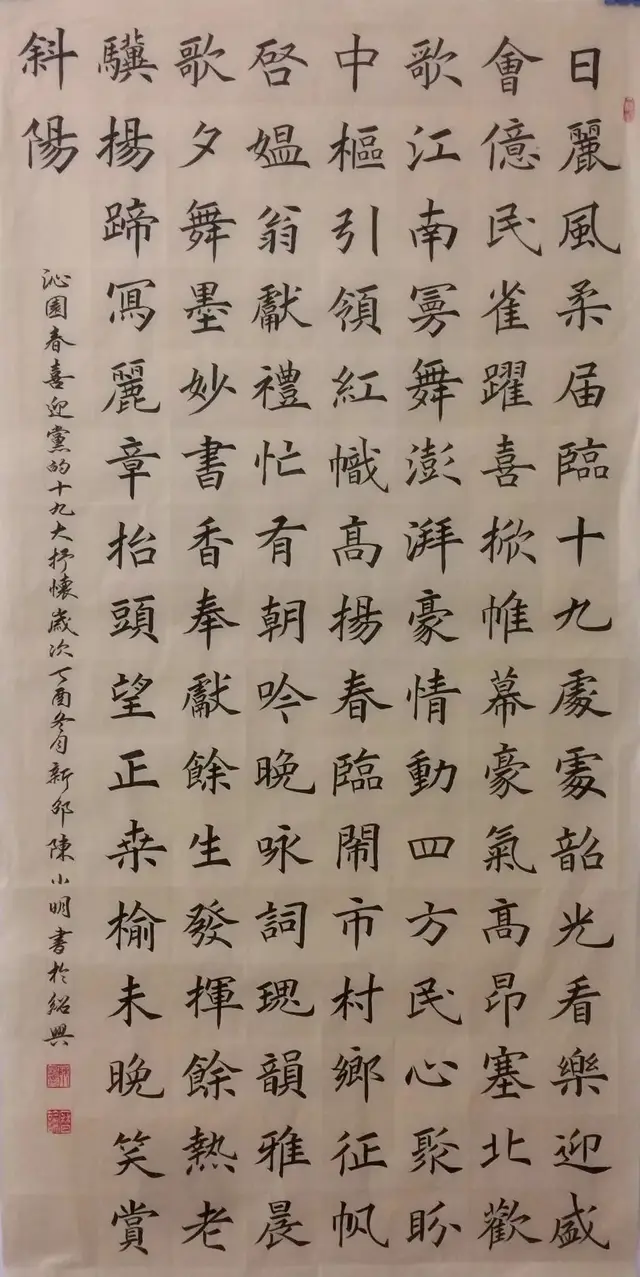 日麗風柔届臨十九處處韶光看樂迎盛
會億民雀躍喜掀帷幕豪氣高昂塞北歡
歌江南舞澎湃豪情動四方民心聚盼
中樞引領紅幟高揚春臨鬧市村鄉征帆
啓媪翁獻禮忙有朝吟晚咏詞瑰韻雅晨
歌夕舞墨妙書香奉獻餘生發揮餘熱老
驥揚蹄寫麗章抬頭望正桑榆未晚笑賞
斜陽
沁園春喜迎黨的十九大抒懷歲次丁酉冬月新邵陳小明書於紹興